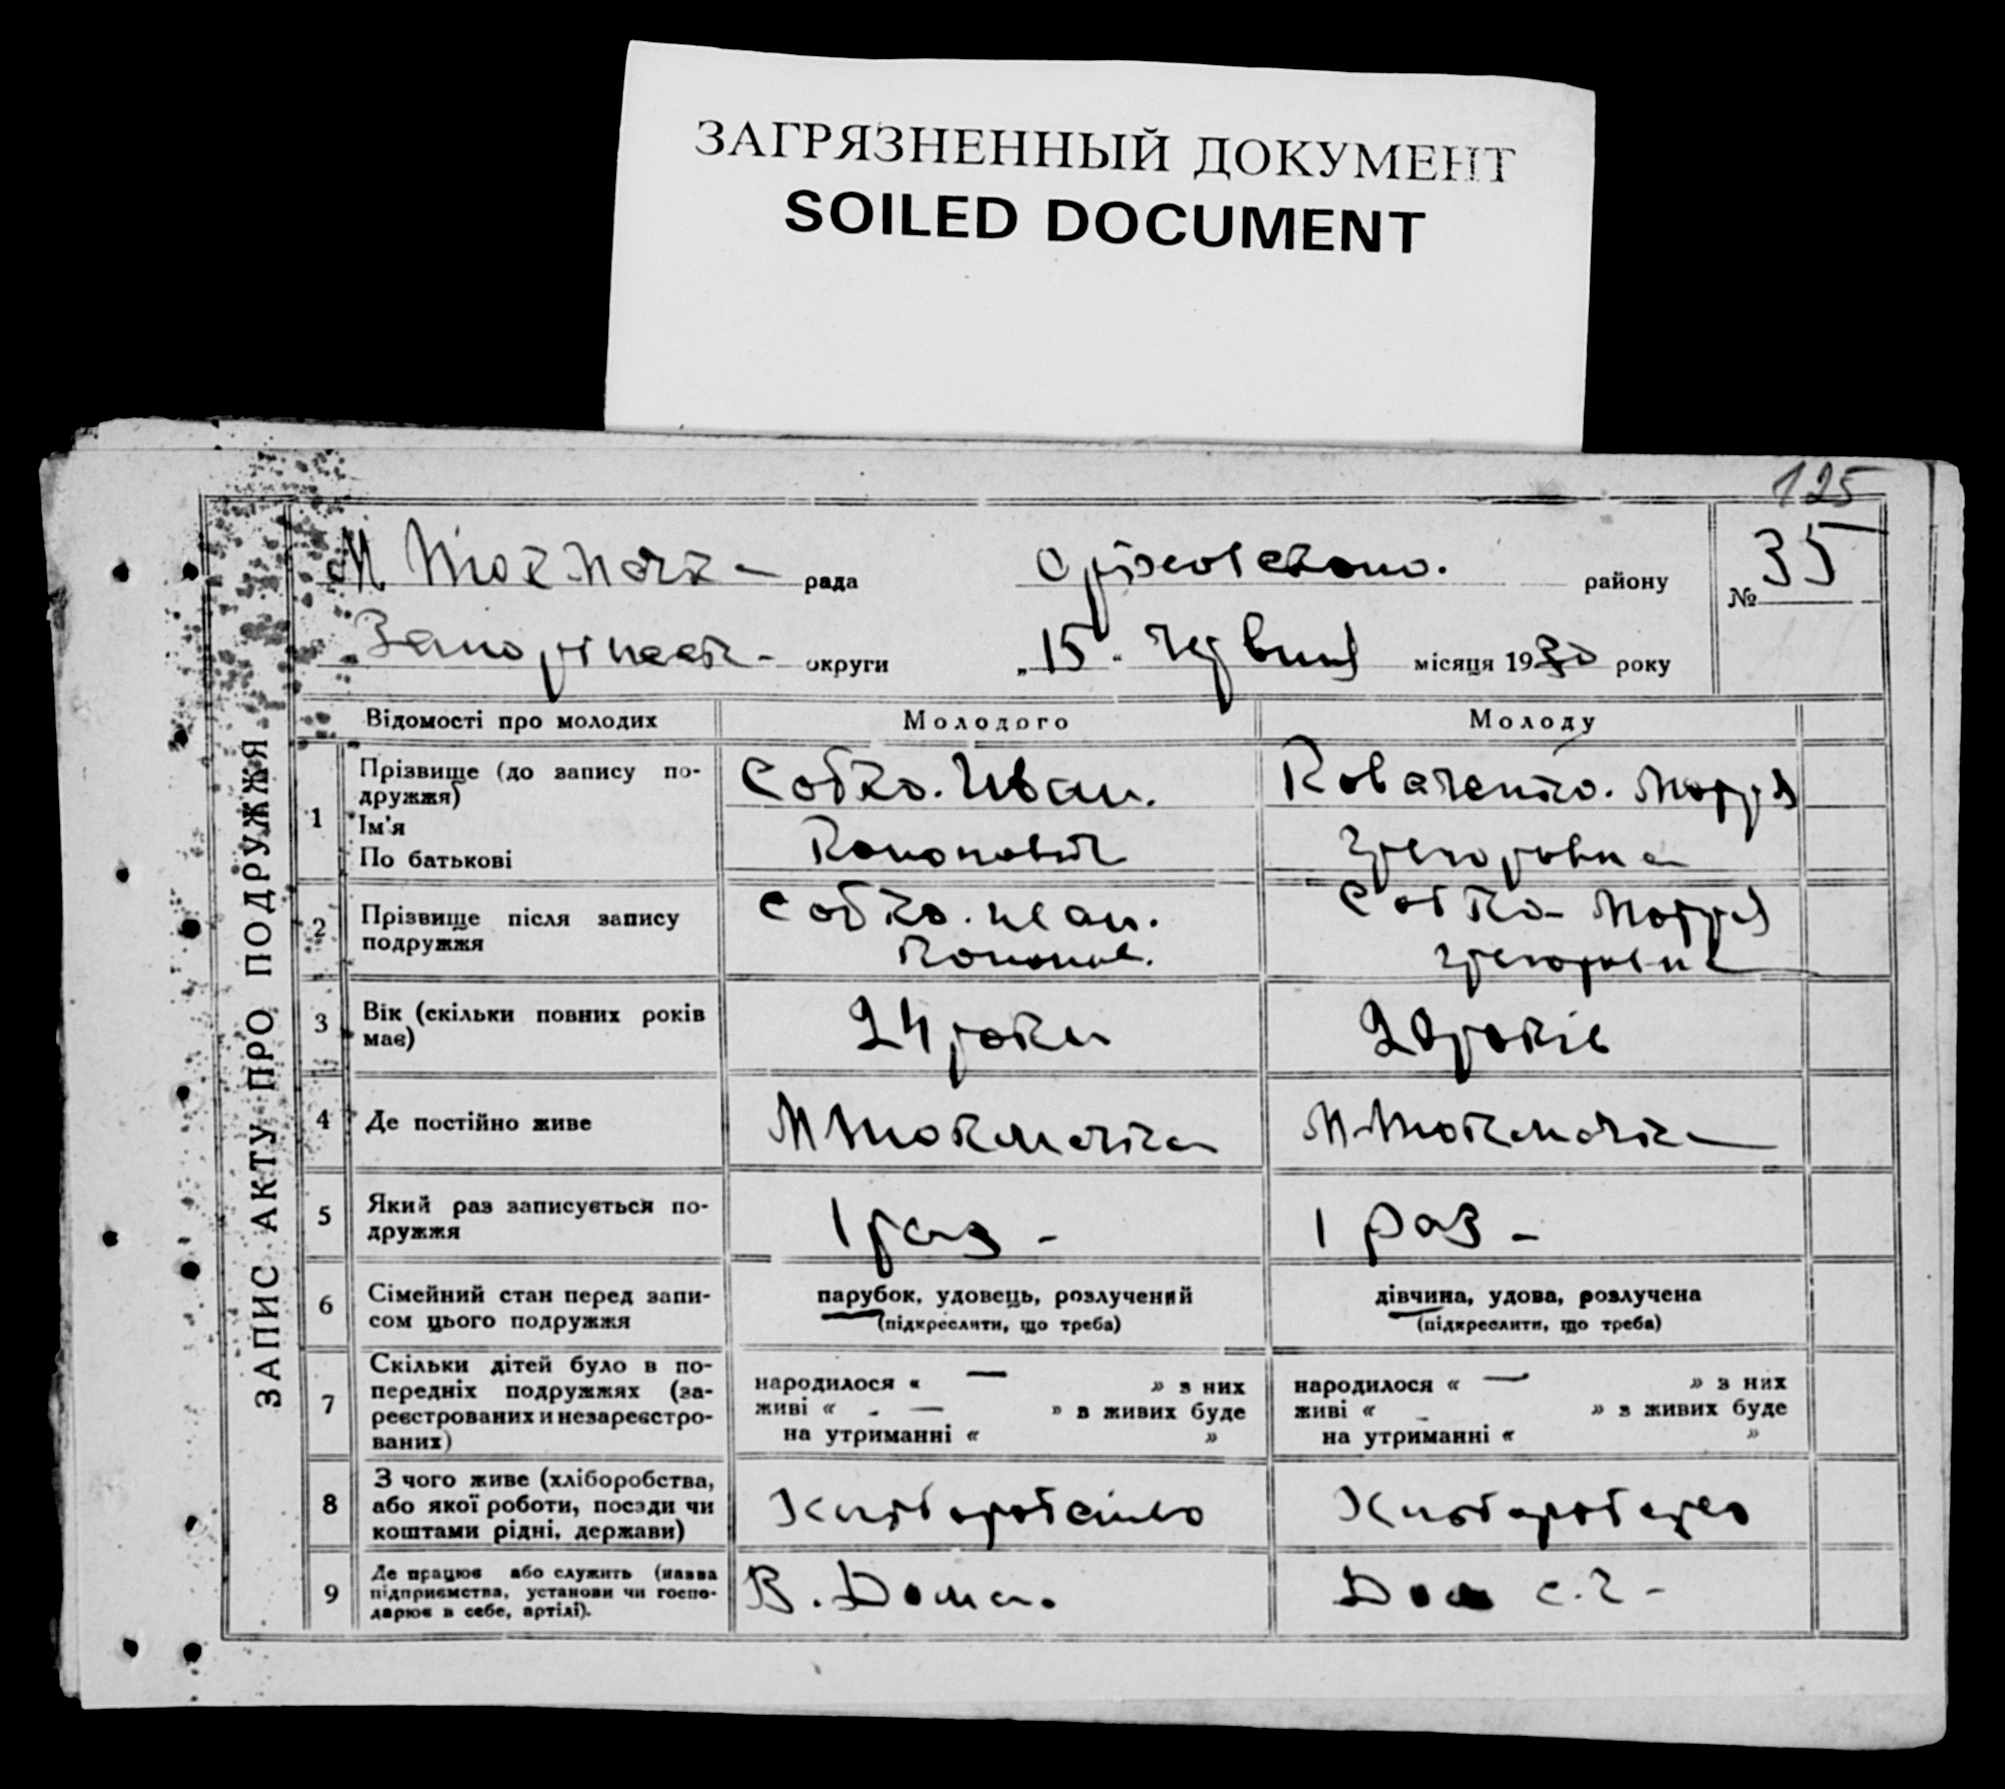 ЗАГРЯЗНЕННЫЙ ДОКУМЕНТ
SOILED DOCUMENT
125
ЗАПИС АКТУ ПРО ПОДРУЖЖЯ
М Токмачка рада району № 35
округи „15" червня місяця 1930 року
Відомості про молодих Молодого Молоду
1 Прізвище (до запису по-
дружжя)
Ім'я
По батькові
Собко. Иван.
Кононович
Коваченко.
Григоровна
2 Прізвище після запису
подружжя
Собко. Иван.
Конон
Собко
Григоровна
3 Вік (скільки повних років
має)
24 роки
20 років
4 Де постійно живе М Токмачка М Токмачка
5 Який раз записується по-
дружжя
1 раз - 1 раз -
6 Сімейний стан перед запи-
сом цього подружжя
парубок, удовець, розлучений
(підкреслити, що треба)
дівчина, удова, розлучена
(підкреслити, що треба)
7 Скільки дітей було в по-
передніх подружжях (за-
реєстрованих и незареєстро-
ваних)
народилося « — » з них
живі « - — » в живих буде
на утриманні « »
народилося « — » з них
живі « - » з живих буде
на утриманні « »
8 З чого живе (хліборобства,
або якої роботи, посади чи
коштами рідні, держави)
Хліборобство
9 Де працює або служить (назва
підприємства, установи чи госпо-
дарює в себе, артілі).
В. Дома.
Дом с.г -